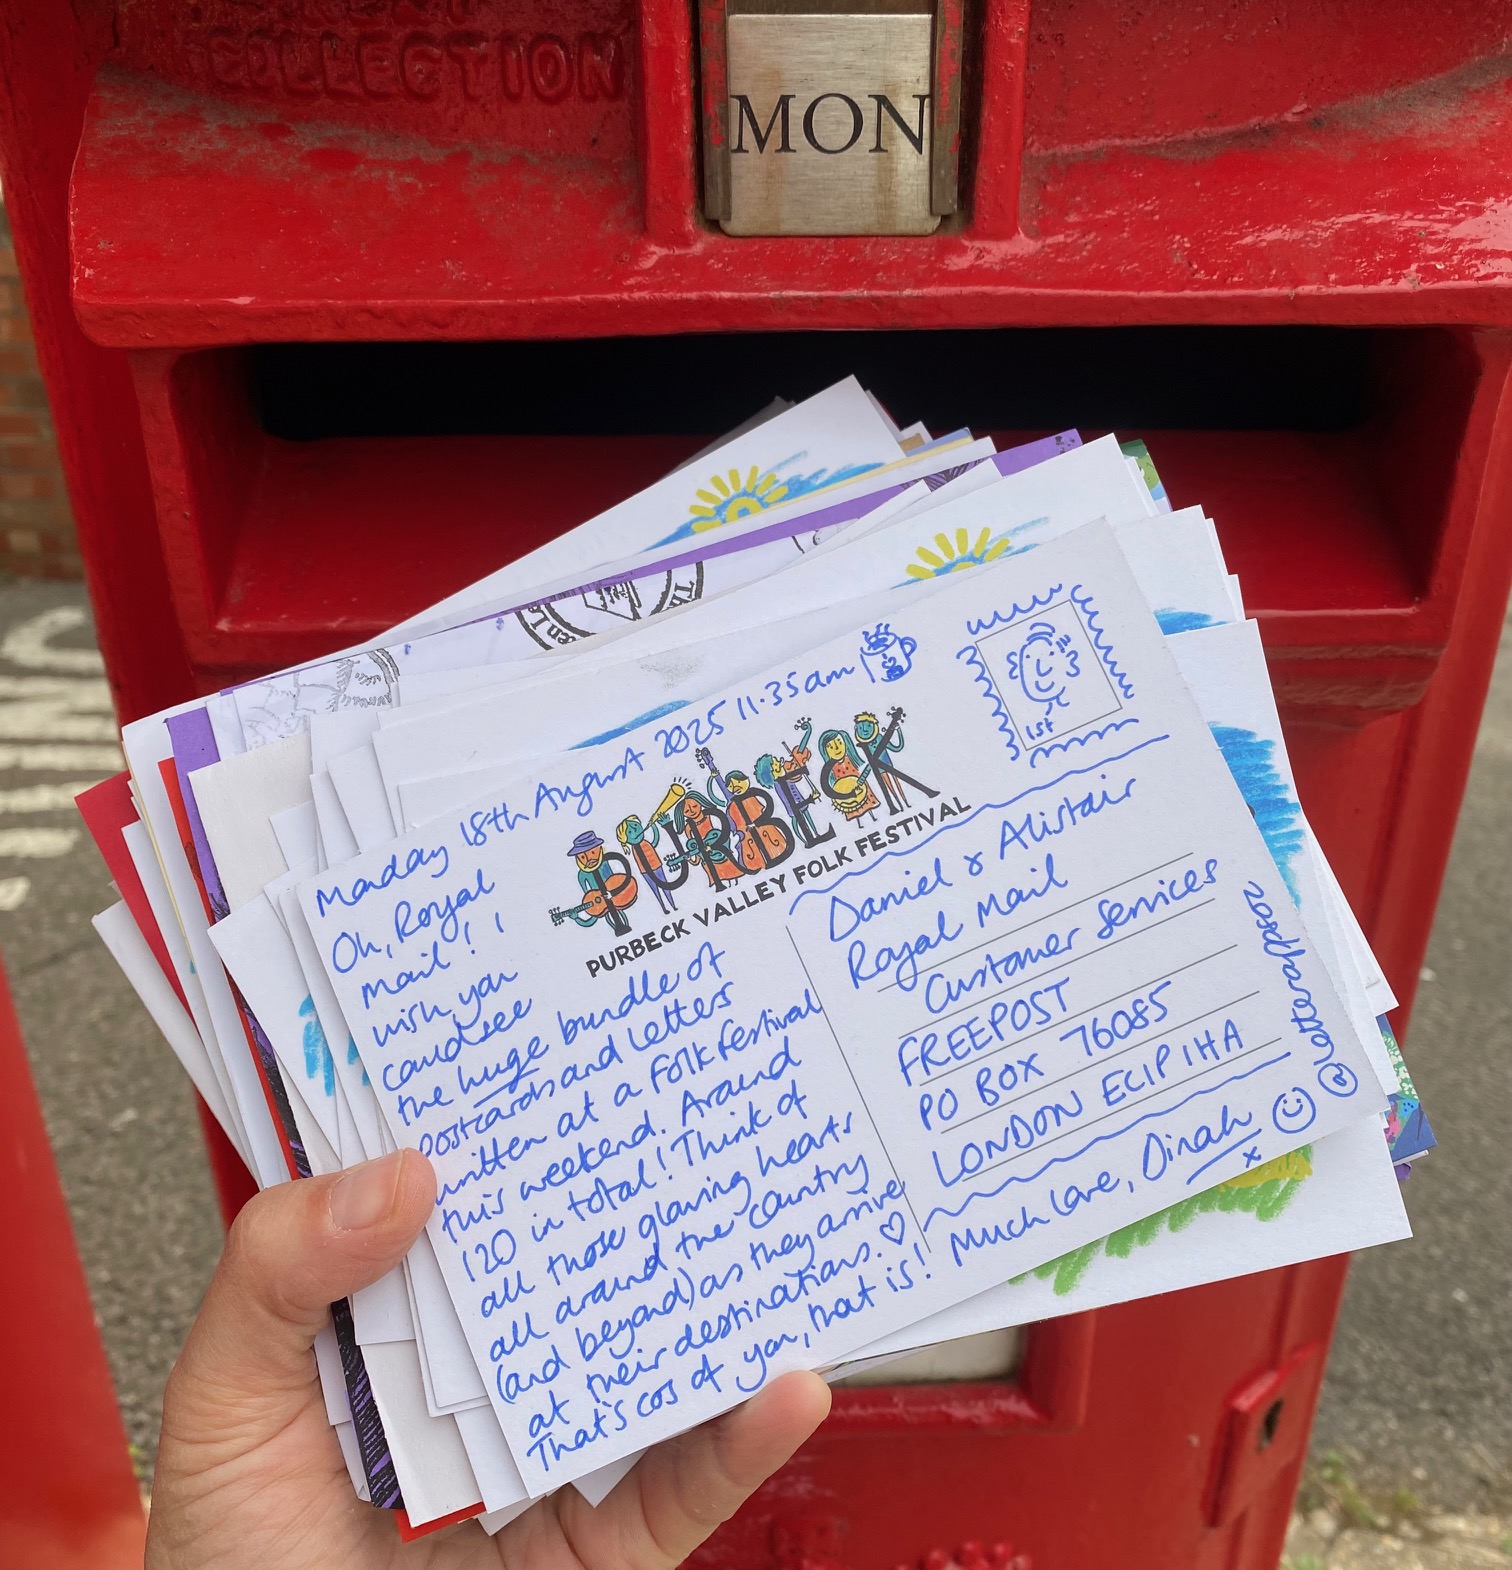 COLLECTION
MON
Monday 18th August 2025 11.35am
Oh, Royal
Mail! I
wish you
could see
the huge bundle of
postcards and letters
written at a folk festival
this weekend. Around
120 in total! Think of
all those glowing hearts
all around the country
(and beyond) as they arrive
at their destinations. ♡
That's cos of you, that is!
PURBECK
PURBECK VALLEY FOLK FESTIVAL
1st
Daniel & Alistair
Royal Mail
Customer Services
FREEPOST
PO BOX 76085
LONDON EC1P 1HA
Much love, Dinah
x
@letterappsoc